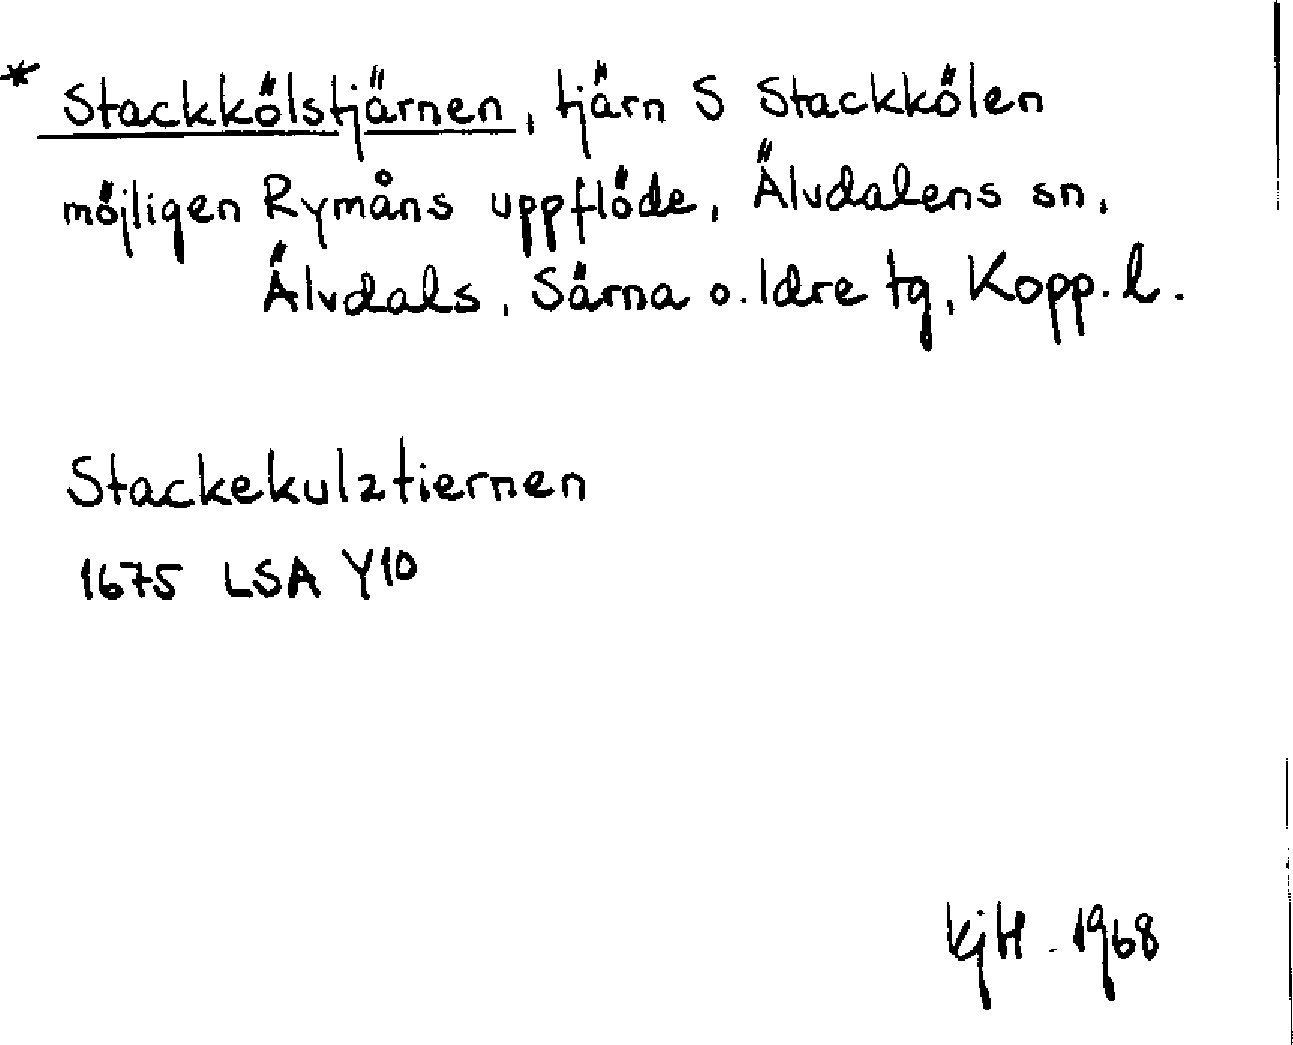 * Stackkölstjärnen, tjärn S Stackkölen
möjligen Rymåns uppflöde, Älvdalens sn,
Älvdals, Särna o. Idre tg, Kopp. l.
Stackekulztiernen
1675 LSA Y10
KjH - 1968